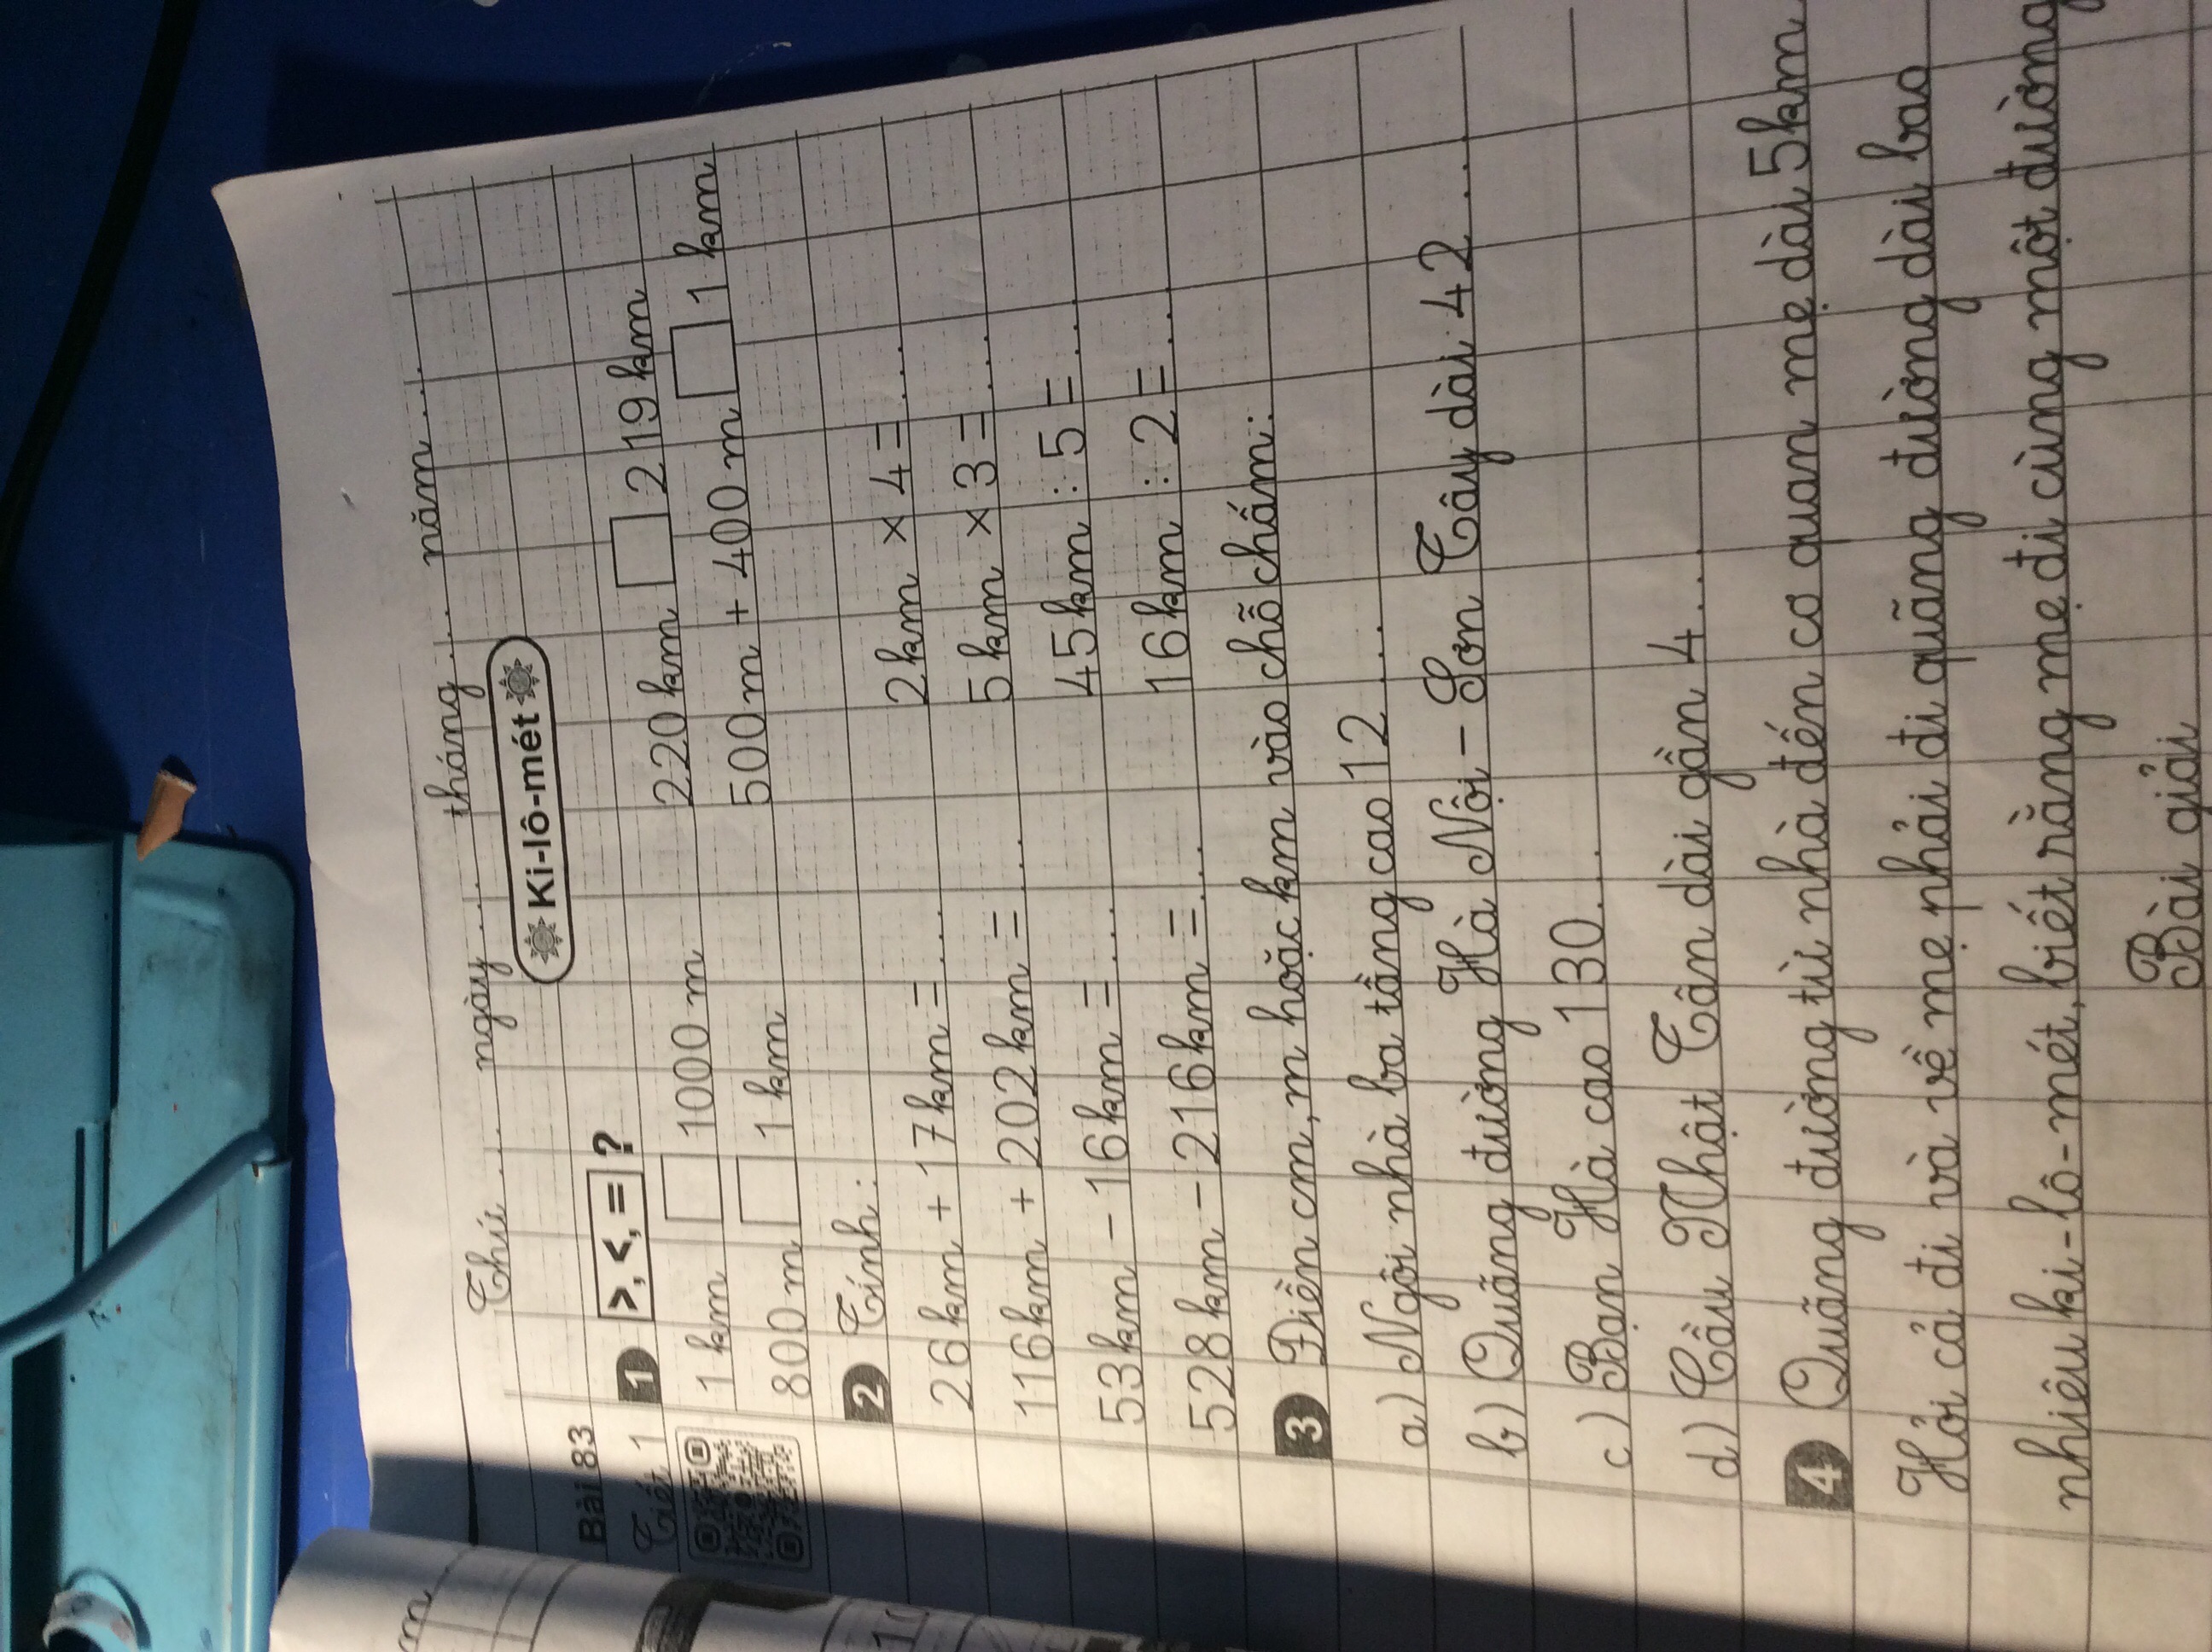 Thứ ... ngày ... tháng ... năm ...
Bài 83
Ki-lô-mét
Tiết 1
1 >, <, = ?
1 km 1000 m 220 km 219 km
800 m 1 km 500 m + 400 m 1 km
2 Tính:
26 km + 17 km = ... 2 km × 4 = ...
116 km + 202 km = ... 5 km × 3 = ...
53 km - 16 km = ... 45 km : 5 = ...
528 km - 216 km = ... 16 km : 2 = ...
3 Điền cm, m hoặc km vào chỗ chấm:
a) Ngôi nhà ba tầng cao 12 ...
b) Quãng đường Hà Nội - Sơn Tây dài 42 ...
c) Bạn Hà cao 130 ...
d) Cầu Nhật Tân dài gần 4 ...
4 Quãng đường từ nhà đến cơ quan mẹ dài 5 km
Hỏi cả đi và về mẹ phải đi quãng đường dài bao
nhiêu ki-lô-mét, biết rằng mẹ đi cùng một đường
Bài giải